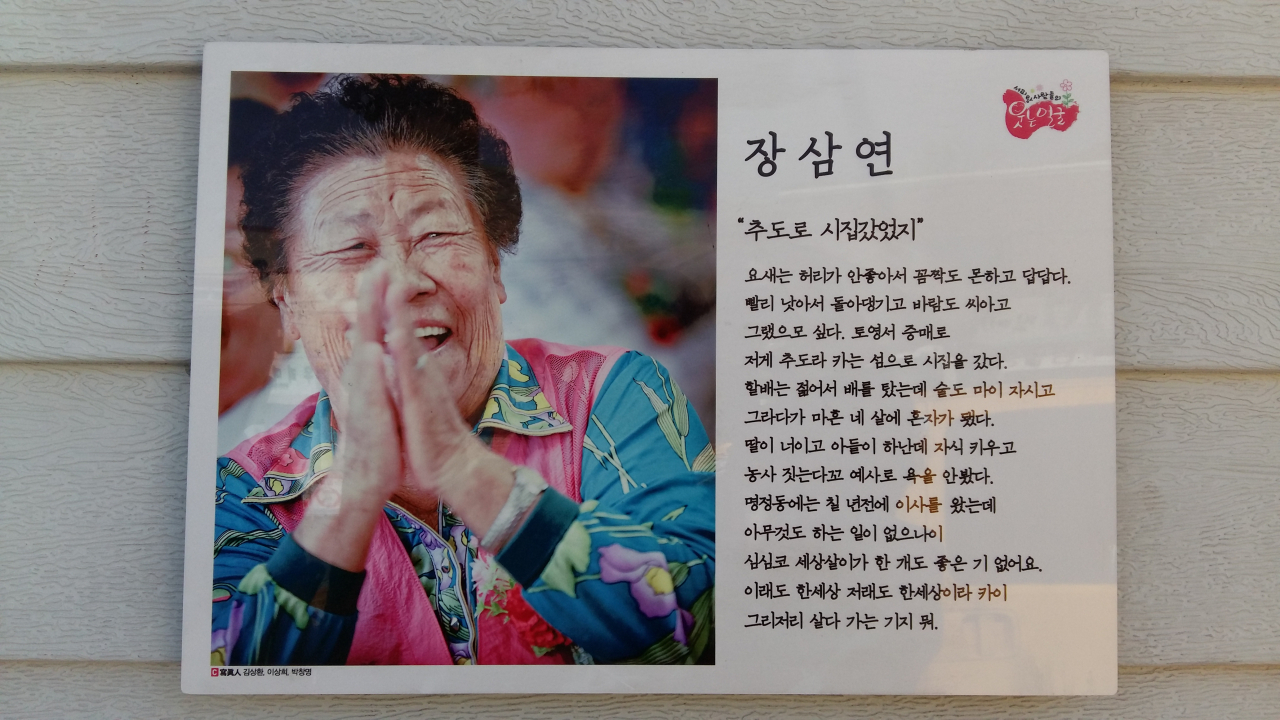 웃는얼굴
장삼연
“추도로 시집갔었지”
요새는 허리가 안좋아서 꼼짝도 몬하고 답답다.
빨리 낫아서 돌아댕기고 바람도 씨아고
그랬으모 싶다. 토영서 중매로
저게 추도라 카는 섬으로 시집을 갔다.
할배는 젊어서 배를 탔는데 술도 마이 자시고
그라다가 마흔 네 살에 혼자가 됐다.
딸이 너이고 아들이 하난데 자식 키우고
농사 짓는다꼬 예사로 욕을 안봤다.
명정동에는 칠 년전에 이사를 왔는데
아무것도 하는 일이 없으나이
심심코 세상살이가 한 개도 좋은 기 없어요.
이래도 한세상 저래도 한세상이라 카이
그리저리 살다 가는 기지 뭐.
C 寫眞人 김상환, 이상희, 박창명